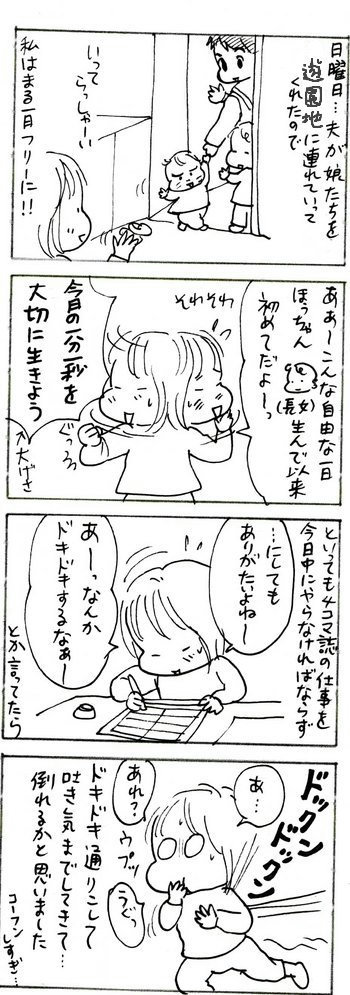 日曜日…夫が娘たちを
遊園地に連れていって
くれたので
いって
らっしゃーい
私はまる一日フリーに!!
あぁーこんな自由な一日
ほっちゃん
(長女)
生んで以来
初めてだよーっ
そわそわ
今日の一分一秒を
大切に生きよう
ぐっ
大げさ
といっても4コマ誌の仕事を
今日中にやらなければならず
…にしても
ありがたいよねー
あーっなんか
ドキドキするなぁー
とか言ってたら
ドックン
ドックン
あ…
あれ?
ウプッ
うぐっ
ドキドキ通りこして
吐き気までしてきて…
倒れるかと思いました
コーフン
しすぎ…